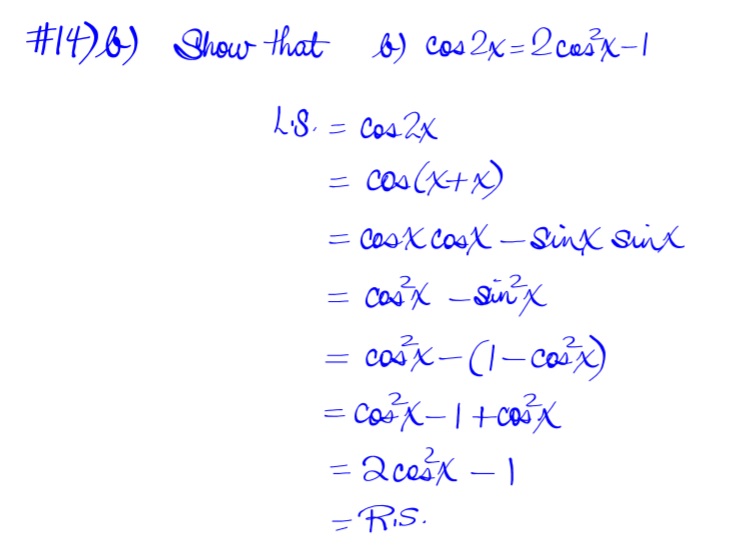 #14) b) Show that b) cos 2x = 2cos²x - 1
L.S. = cos 2x
= cos(x + x)
= cos x cos x - sin x sin x
= cos²x - sin²x
= cos²x - (1 - cos²x)
= cos²x - 1 + cos²x
= 2cos²x - 1
= R.S.